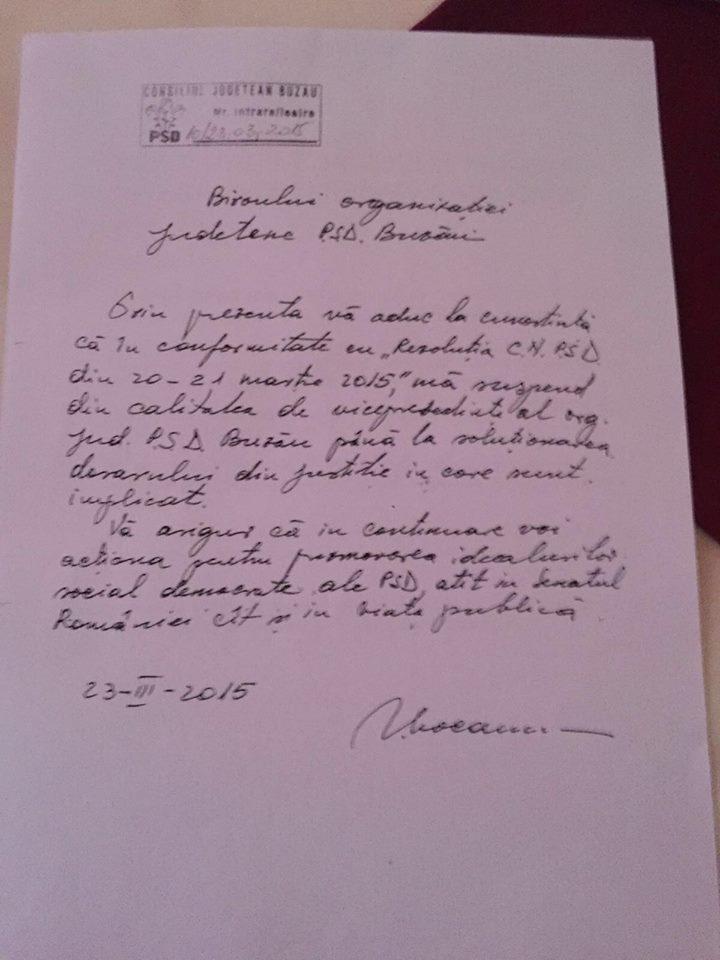 CONSILIUL JUDETEAN BUZAU
Nr. intrare/iesire
PSD 10/23.03.2015
Biroului organizației
județene P.S.D. Buzău
Prin prezenta vă aduc la cunoștință
că în conformitate cu „Rezoluția C.N. PSD
din 20-21 martie 2015," mă suspend
din calitatea de vicepreședinte al org.
jud. P.S.D. Buzău până la soluționarea
dosarului din justiție in care sunt
implicat.
Vă asigur că in continuare voi
acționa pentru promovarea idealurilor
social democrate ale PSD, atît in Senatul
României cît și in viața publică.
23-III-2015